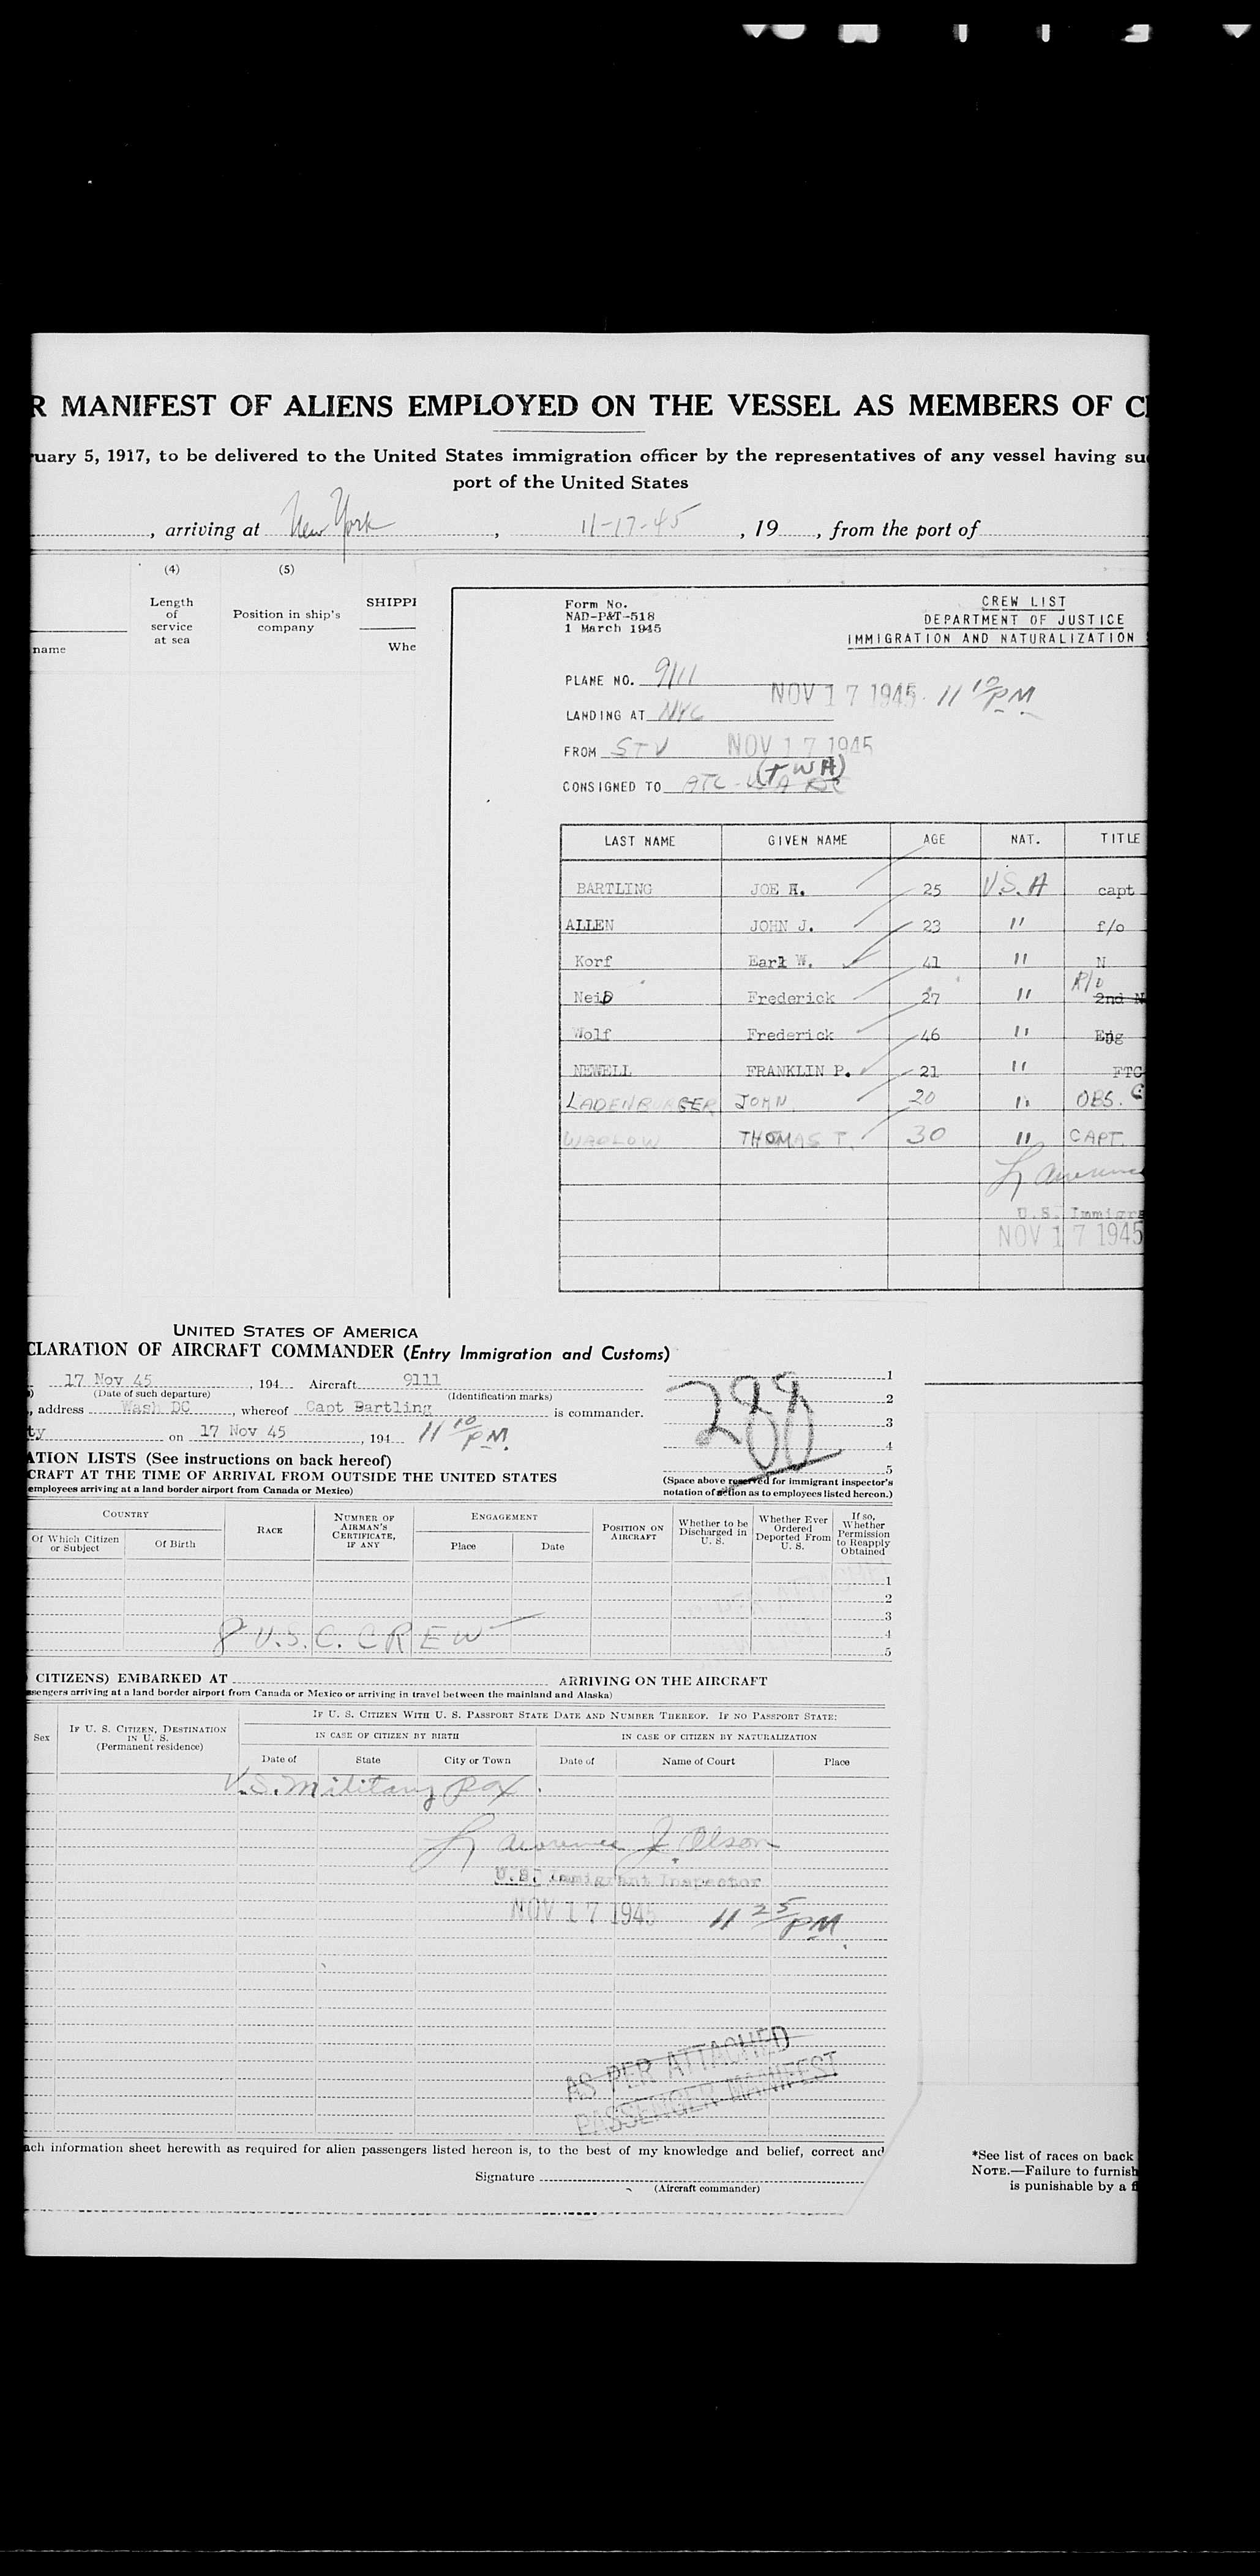 R MANIFEST OF ALIENS EMPLOYED ON THE VESSEL AS MEMBERS OF C
ruary 5, 1917, to be delivered to the United States immigration officer by the representatives of any vessel having su
port of the United States
, arriving at New York , 11-17-45 , 19 , from the port of
(4) (5)
Length of service at sea
Position in ship's company
SHIPPI
name
Whe
Form No.
NAD-P&T-518
1 March 1945
CREW LIST
DEPARTMENT OF JUSTICE
IMMIGRATION AND NATURALIZATION
PLANE NO. 9111
NOV 17 1945 11 10 PM
LANDING AT NYC
FROM STV NOV 17 1945
CONSIGNED TO ATC - (TWA)
LAST NAME GIVEN NAME AGE NAT. TITLE
BARTLING JOE H. 25 U.S.A capt
ALLEN JOHN J. 23 " f/o
Korf Earl W. 41 " N
NeiD Frederick 27 " R/O 2nd N
Wolf Frederick 46 " Eng
NEWELL FRANKLIN P. 21 " FTC
LADENBURGER JOHN 20 " OBS.
THOMAS T. 30 " CAPT.
Lawrence
U.S. Immigra
NOV 17 1945
UNITED STATES OF AMERICA
CLARATION OF AIRCRAFT COMMANDER (Entry Immigration and Customs)
17 Nov 45 , 194 Aircraft 9111
(Date of such departure) (Identification marks)
, address Wash DC , whereof Capt Bartling is commander.
ty on 17 Nov 45 , 194 11 10 PM.
1
2
3
4
5
288
ATION LISTS (See instructions on back hereof)
CRAFT AT THE TIME OF ARRIVAL FROM OUTSIDE THE UNITED STATES
employees arriving at a land border airport from Canada or Mexico)
(Space above reserved for immigrant inspector's
notation of action as to employees listed hereon.)
COUNTRY
Of Which Citizen or Subject
Of Birth
RACE
NUMBER OF AIRMAN'S CERTIFICATE, IF ANY
ENGAGEMENT
Place Date
POSITION ON AIRCRAFT
Whether to be Discharged in U. S.
Whether Ever Ordered Deported From U. S.
If so, Whether Permission to Reapply Obtained
1
2
3
4
5
8 U.S.C. CREW
CITIZENS) EMBARKED AT ARRIVING ON THE AIRCRAFT
ssengers arriving at a land border airport from Canada or Mexico or arriving in travel between the mainland and Alaska)
Sex
IF U. S. CITIZEN, DESTINATION IN U. S. (Permanent residence)
IF U. S. CITIZEN WITH U. S. PASSPORT STATE DATE AND NUMBER THEREOF. IF NO PASSPORT STATE:
IN CASE OF CITIZEN BY BIRTH IN CASE OF CITIZEN BY NATURALIZATION
Date of State City or Town Date of Name of Court Place
U.S. Military Pax
Lawrence J. Olson
U.S. Immigrant Inspector
NOV 17 1945 11 25 PM
AS PER ATTACHED
PASSENGER MANIFEST
ach information sheet herewith as required for alien passengers listed hereon is, to the best of my knowledge and belief, correct and
Signature
(Aircraft commander)
*See list of races on back
NOTE.—Failure to furnish
is punishable by a f